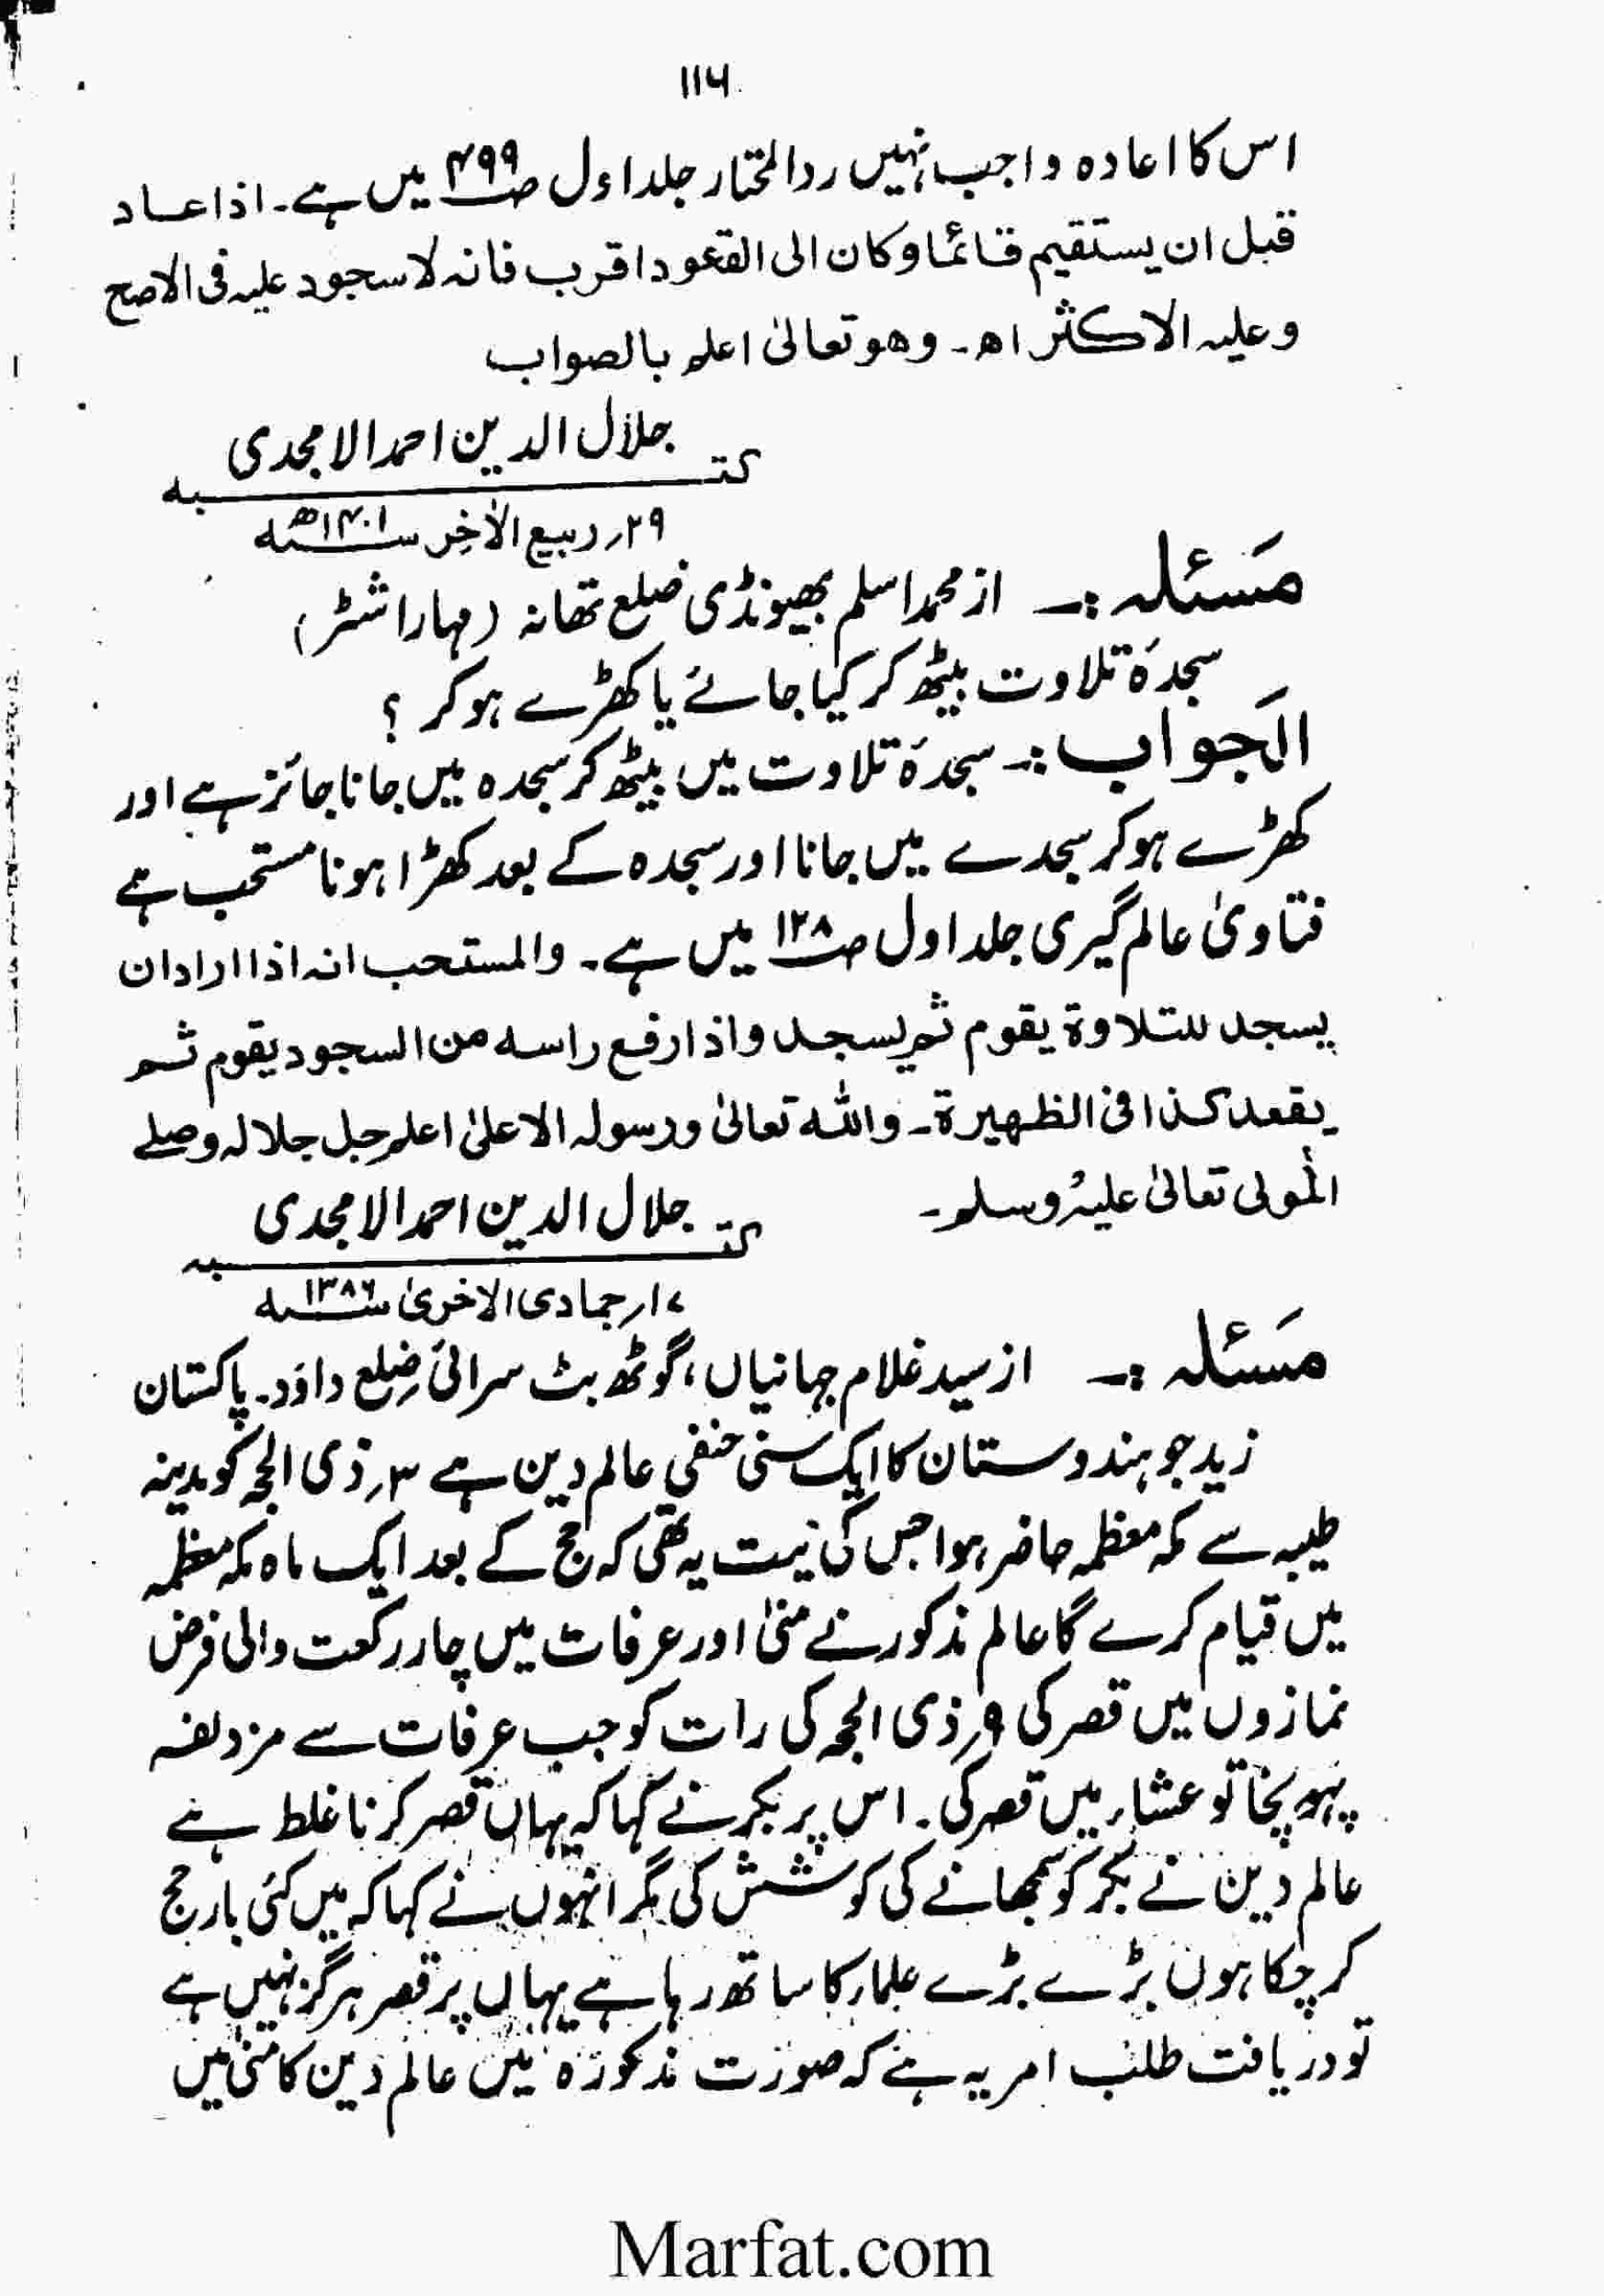 ۱۱۶
اس کا اعادہ واجب نہیں ردالمحتار جلد اول ص۴۹۹ میں ہے۔ اذا عاد
قبل ان یستقیم قائما و کان الی القعود اقرب فانہ لا سجود علیہ فی الاصح
و علیہ الاکثر اھ۔ وھو تعالیٰ اعلم بالصواب
کتبہ جلال الدین احمد الامجدی
۲۹؍ ربیع الاٰخِر سنہ ۱۴۰۱ھ
مَسْئلہ :۔ از محمد اسلم بھیونڈی ضلع تھانہ (مہاراشٹر)
سجدۂ تلاوت بیٹھ کر کیا جائے یا کھڑے ہو کر ؟
الجَواب :۔ سجدۂ تلاوت میں بیٹھ کر سجدہ میں جانا جائز ہے اور
کھڑے ہو کر سجدے میں جانا اور سجدہ کے بعد کھڑا ہونا مستحب ہے
فتاویٰ عالم گیری جلد اول ص۱۲۸ میں ہے۔ والمستحب انہ اذا اراد ان
یسجد للتلاوۃ یقوم ثم یسجد و اذا رفع راسہ من السجود یقوم ثم
یقعد کذا فی الظھیرۃ۔ واللہ تعالیٰ ورسولہ الاعلیٰ اعلم جل جلالہ وصلے
المولی تعالیٰ علیہ وسلم۔
کتبہ جلال الدین احمد الامجدی
۱۷؍ جمادی الاخریٰ سنہ ۱۳۸۶
مَسْئلہ :۔ از سید غلام جہانیاں، گوٹھ بٹ سرائی ضلع داؤد۔ پاکستان
زید جو ہندوستان کا ایک سنی حنفی عالم دین ہے ۳؍ ذی الحجہ کو مدینہ
طیبہ سے مکہ معظمہ حاضر ہوا جس کی نیت یہ تھی کہ حج کے بعد ایک ماہ مکہ معظمہ
میں قیام کرے گا عالم مذکور نے منیٰ اور عرفات میں چار رکعت والی فرض
نمازوں میں قصر کی ۹؍ ذی الحجہ کی رات کو جب عرفات سے مزدلفہ
پہونچا تو عشاء میں قصر کی۔ اس پر بکر نے کہا کہ یہاں قصر کرنا غلط ہے
عالم دین نے بکر کو سمجھانے کی کوشش کی مگر انہوں نے کہا کہ میں کئی بار حج
کر چکا ہوں بڑے بڑے علماء کا ساتھ رہا ہے یہاں پر قصر ہرگز نہیں ہے
تو دریافت طلب امر یہ ہے کہ صورت مذکورہ میں عالم دین کا منیٰ میں
Marfat.com